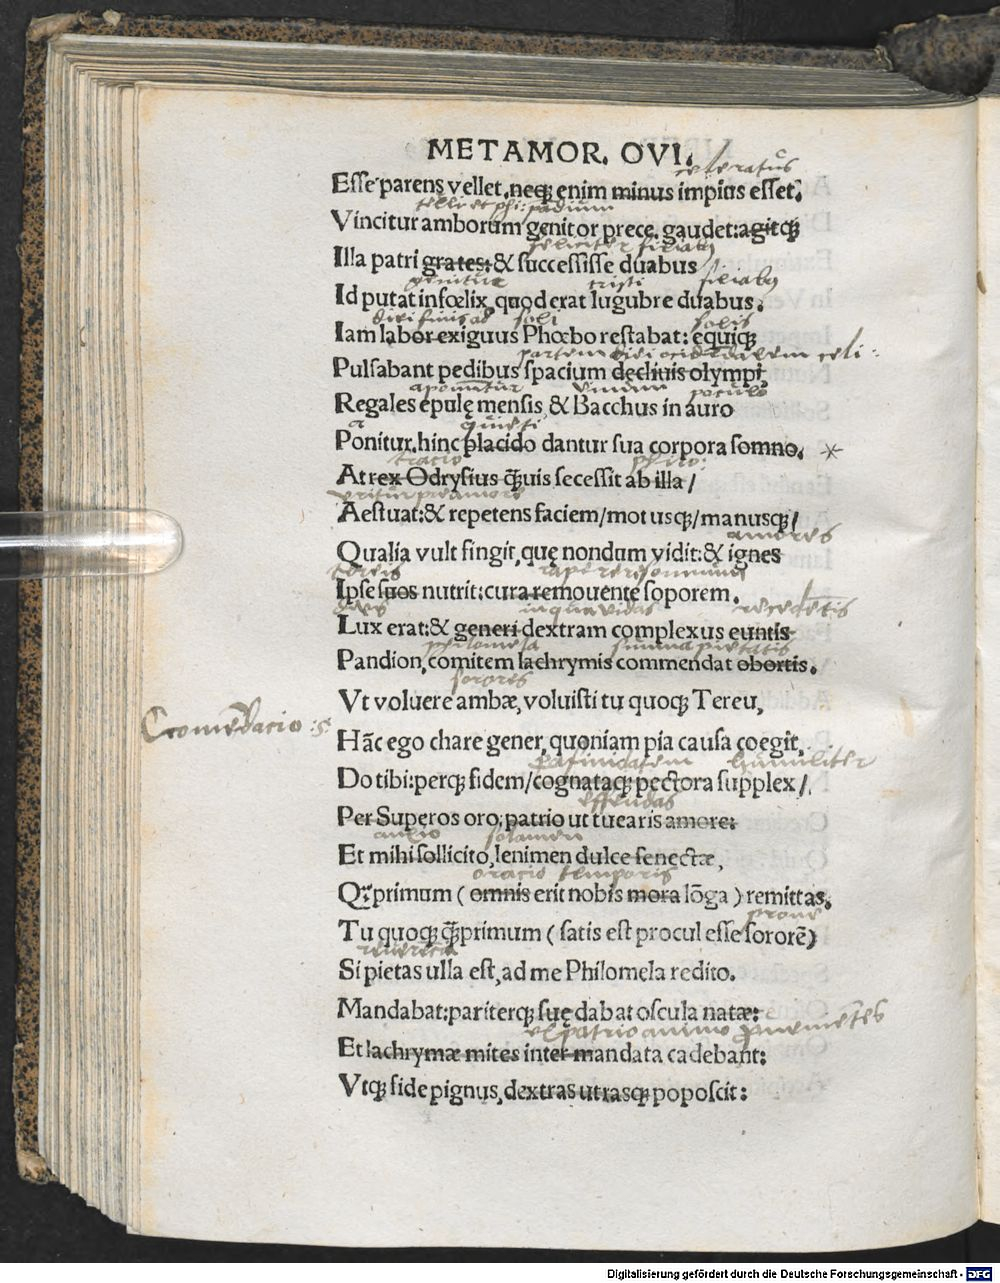 METAMOR. OVI.
celeratus
Esse parens vellet, neqꝫ enim minus impius esset.
Vincitur amborum genitor prece, gaudet: agitqꝫ
feliciter filiabꝰ
Illa patri grates: & successisse duabus
tristi filiabꝰ
Id putat infœlix, quod erat lugubre duabus.
soli solis
Iam labor exiguus Phœbo restabat: equiqꝫ
Pulsabant pedibus spacium decliuis olympi,
vinum poculo
Regales epulę mensis, & Bacchus in auro
quieti
Ponitur. hinc placido dantur sua corpora somno. *
At rex Odrysius q̃uis secessit ab illa /
vritur pre amore
Aestuat: & repetens faciem / motusqꝫ / manusqꝫ /
amores
Qualia vult fingit, quę nondum vidit: & ignes
Ipse suos nutrit: cura remouente soporem.
recedētis
Lux erat: & generi dextram complexus euntis
philomela
Pandion, comitem lachrymis commendat obortis.
sorores
Vt voluere ambæ, voluisti tu quoqꝫ Tereu,
Hāc ego chare gener, quoniam pia causa coegit,
humiliter
Do tibi: perqꝫ fidem / cognataqꝫ pectora supplex /
Per Superos oro, patrio ut tuearis amore:
solamen
Et mihi sollicito, lenimen dulce senectæ,
temporis
Qꝫ primum ( omnis erit nobis mora lōga ) remittas.
Tu quoqꝫ q̃primum ( satis est procul esse sororē )
Si pietas ulla est, ad me Philomela redito.
Mandabat: pariterqꝫ suę dabat oscula natæ:
Et lachrymæ mites inter mandata cadebant:
Vtqꝫ fide pignus, dextras utrasqꝫ poposcit:
Digitalisierung gefördert durch die Deutsche Forschungsgemeinschaft - DFG